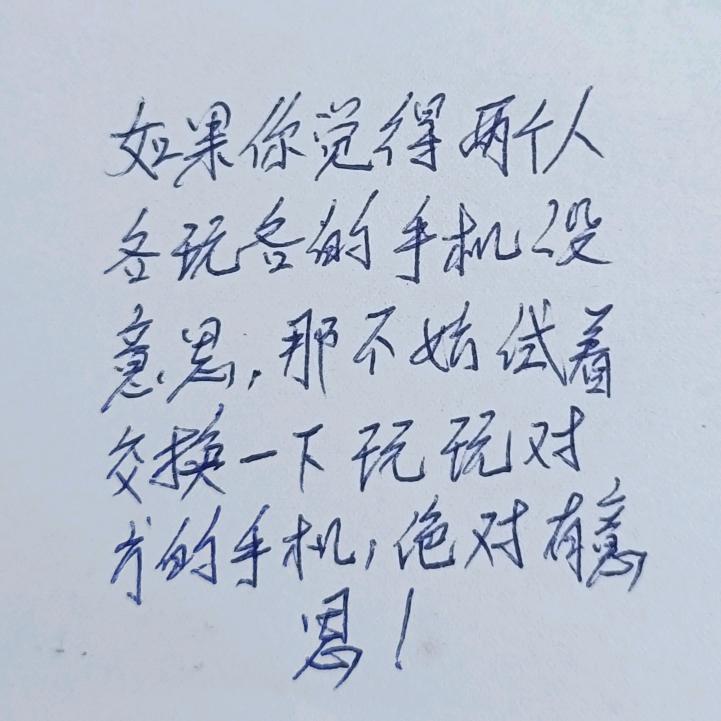 如果你觉得两个人
各玩各的手机没
意思，那不妨试着
交换一下玩玩对
方的手机，绝对有意
思！